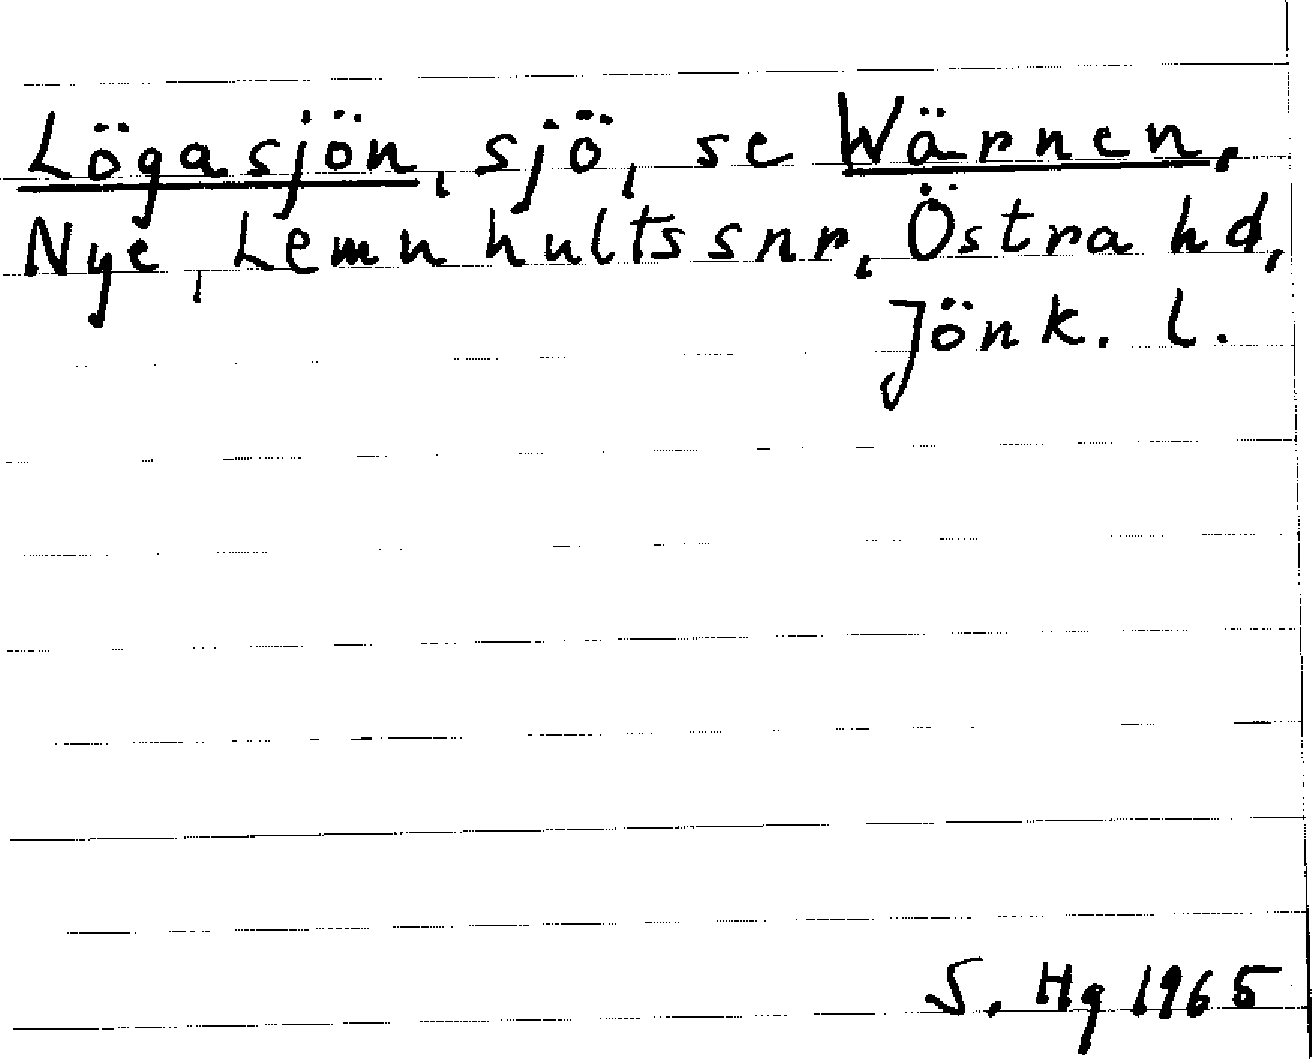 Lögasjön, sjö, se Wärnen,
Nye, Lemnhultssnr, Östra hd,
Jönk. l.
S. Hg 1965